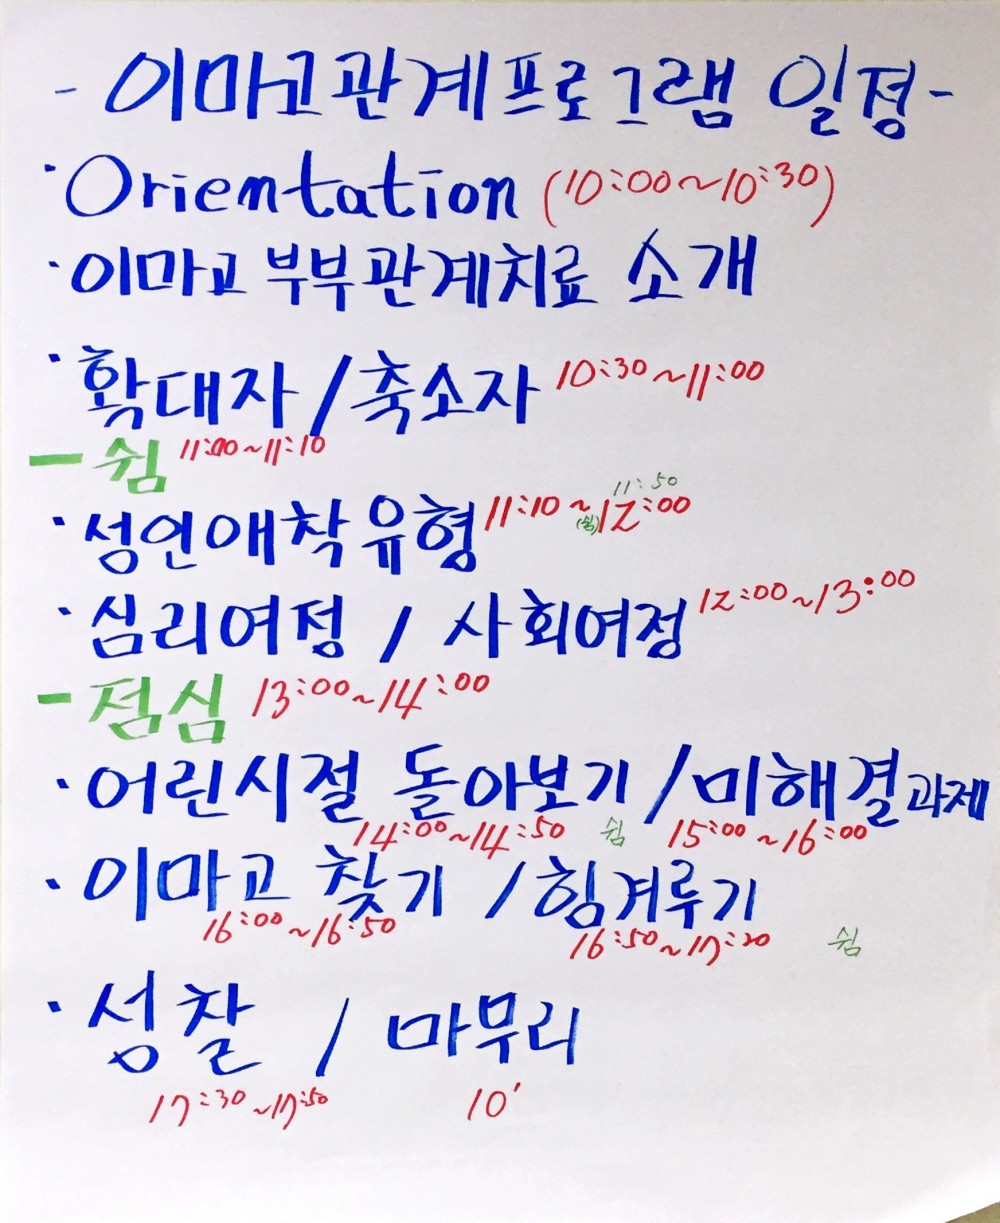 - 이마고관계프로그램 일정 -
· Orientation (10:00~10:30)
· 이마고 부부관계치료 소개
· 확대자 / 축소자 10:30~11:00
- 쉼 11:00~11:10
11:50
· 성인애착유형 11:10~(쉼)12:00
· 심리여정 / 사회여정 12:00~13:00
- 점심 13:00~14:00
· 어린시절 돌아보기 / 미해결과제
14:00~14:50 쉼 15:00~16:00
· 이마고 찾기 / 힘겨루기
16:00~16:50 16:50~17:20 쉼
· 성찰 / 마무리
17:30~17:50 10'